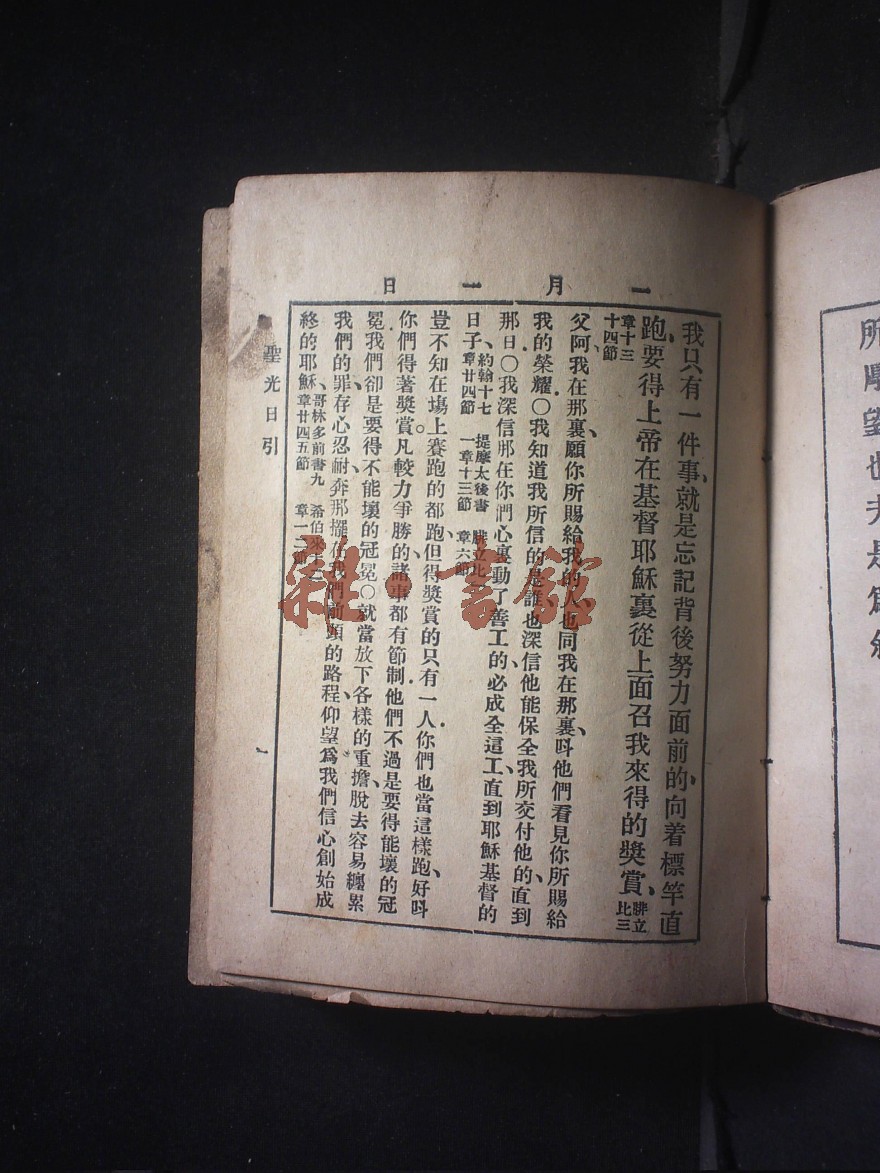 一月一日
我只有一件事、就是忘記背後努力面前的、向着標竿直
跑、要得上帝在基督耶穌裏從上面召我來得的獎賞、腓立比三
章十三十四節
父阿我在那裏、願你所賜給我的人、也同我在那裏、呌他們看見你所賜給
我的榮耀○我知道我所信的是誰、也深信他能保全我所交付他的、直到
那日○我深信那在你們心裏動了善工的、必成全這工、直到耶穌基督的
日子、約翰十七章廿四節 提摩太後書一章十三節 腓立比一章六節
豈不知在塲上賽跑的都跑、但得獎賞的只有一人、你們也當這樣跑、好呌
你們得著獎賞。凡較力爭勝的、諸事都有節制、他們不過是要得能壞的冠
冕、我們卻是要得不能壞的冠冕○就當放下各樣的重擔、脫去容易纏累
我們的罪、存心忍耐、奔那擺在我們前頭的路程、仰望爲我們信心創始成
終的耶穌、哥林多前書九章廿四五節 希伯來章一二節
聖光日引
一
雜·書館
所學望也夫是爲